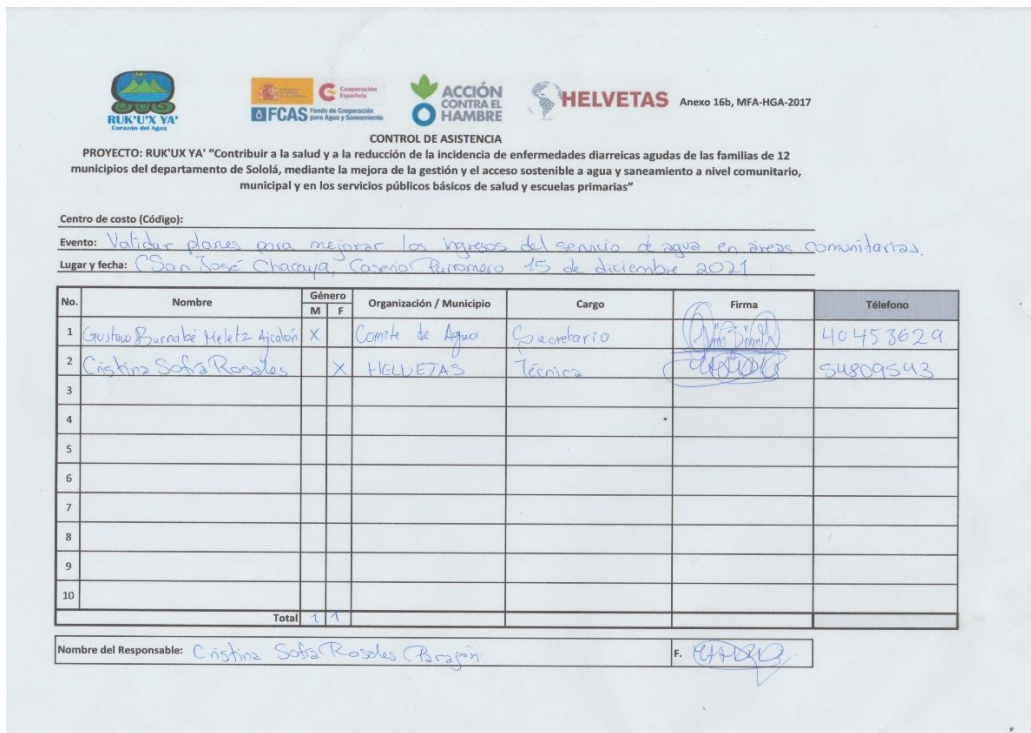 RUK'U'X YA'
Corazón del Agua
Cooperación Española
FCAS Fondo de Cooperación para Agua y Saneamiento
ACCIÓN CONTRA EL HAMBRE
HELVETAS
Anexo 16b, MFA-HGA-2017
CONTROL DE ASISTENCIA
PROYECTO: RUK'UX YA' “Contribuir a la salud y a la reducción de la incidencia de enfermedades diarreicas agudas de las familias de 12
municipios del departamento de Sololá, mediante la mejora de la gestión y el acceso sostenible a agua y saneamiento a nivel comunitario,
municipal y en los servicios públicos básicos de salud y escuelas primarias”
Centro de costo (Código):
Evento: Validar planes para mejorar los ingresos del servicio de agua en áreas comunitarias.
Lugar y fecha: San José Chacaya, Caserio Parromero 15 de diciembre 2021
No. Nombre Género M F Organización / Municipio Cargo Firma Télefono
1 Gustavo Bernabé Meletz Ajcalón X Comite de Agua. Secretario 40453629.
2 Cristina Sofía Rosales X HELVETAS Técnica 54809543
3
4
5
6
7
8
9
10
Total 1 1
Nombre del Responsable: Cristina Sofía Rosales Paragón F.